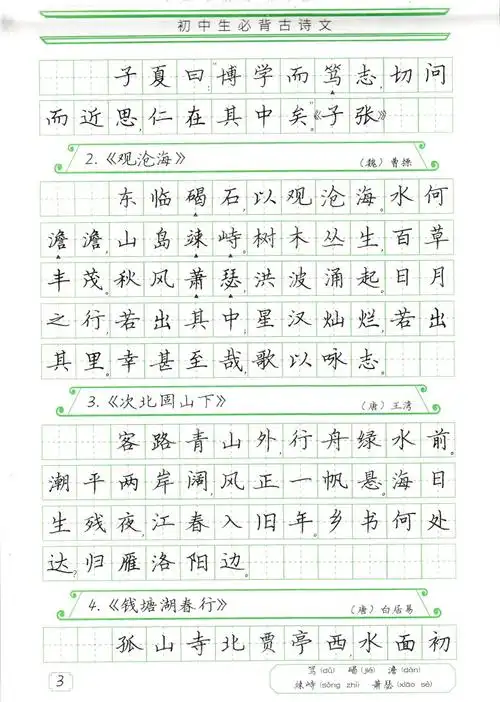 初中生必背古诗文
子夏曰:“博学而笃志,切问
而近思,仁在其中矣。”《子张》
2.《观沧海》
(魏)曹操
东临碣石,以观沧海。水何
澹澹,山岛竦峙。树木丛生,百草
丰茂。秋风萧瑟,洪波涌起。日月
之行,若出其中;星汉灿烂,若出
其里。幸甚至哉,歌以咏志。
3.《次北固山下》
(唐)王湾
客路青山外,行舟绿水前。
潮平两岸阔,风正一帆悬。海日
生残夜,江春入旧年。乡书何处
达?归雁洛阳边。
4.《钱塘湖春行》
(唐)白居易
孤山寺北贾亭西,水面初
笃(dǔ) 碣(jié) 澹(dàn)
竦峙(sǒng zhì) 萧瑟(xiāo sè)
3